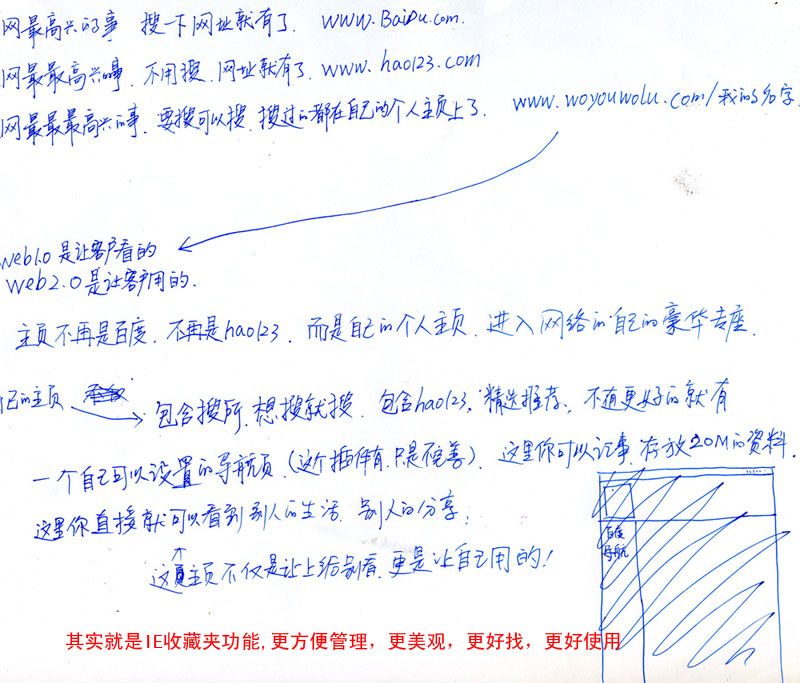 网最高兴的事 搜一下网址就有了. www.Baidu.com.
网最最高兴的事. 不用搜, 网址就有了. www.hao123.com
网最最最高兴的事. 要搜可以搜, 搜过的都在自己的个人主页上了. www.woyouwolu.com/我的名字.
web1.0 是让客户看的
web2.0 是让客户用的.
主页不再是百度. 不再是hao123. 而是自己的个人主页. 进入网络的自己的豪华专座.
己的主页 包含搜所, 想搜就搜. 包含hao123, 精选推荐. 不, 有更好的就有
一个自己可以设置的导航页. (这个插件有, 只是不完善). 这里你可以记事, 存放20M的资料.
这里你直接就可以看到别人的生活. 别人的分享.
百度
导航
这主页不仅是让上给别看, 更是让自己用的!
其实就是IE收藏夹功能,更方便管理，更美观，更好找，更好使用